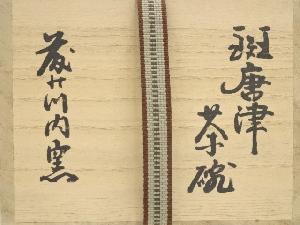 斑唐津
茶碗
藏川内窯